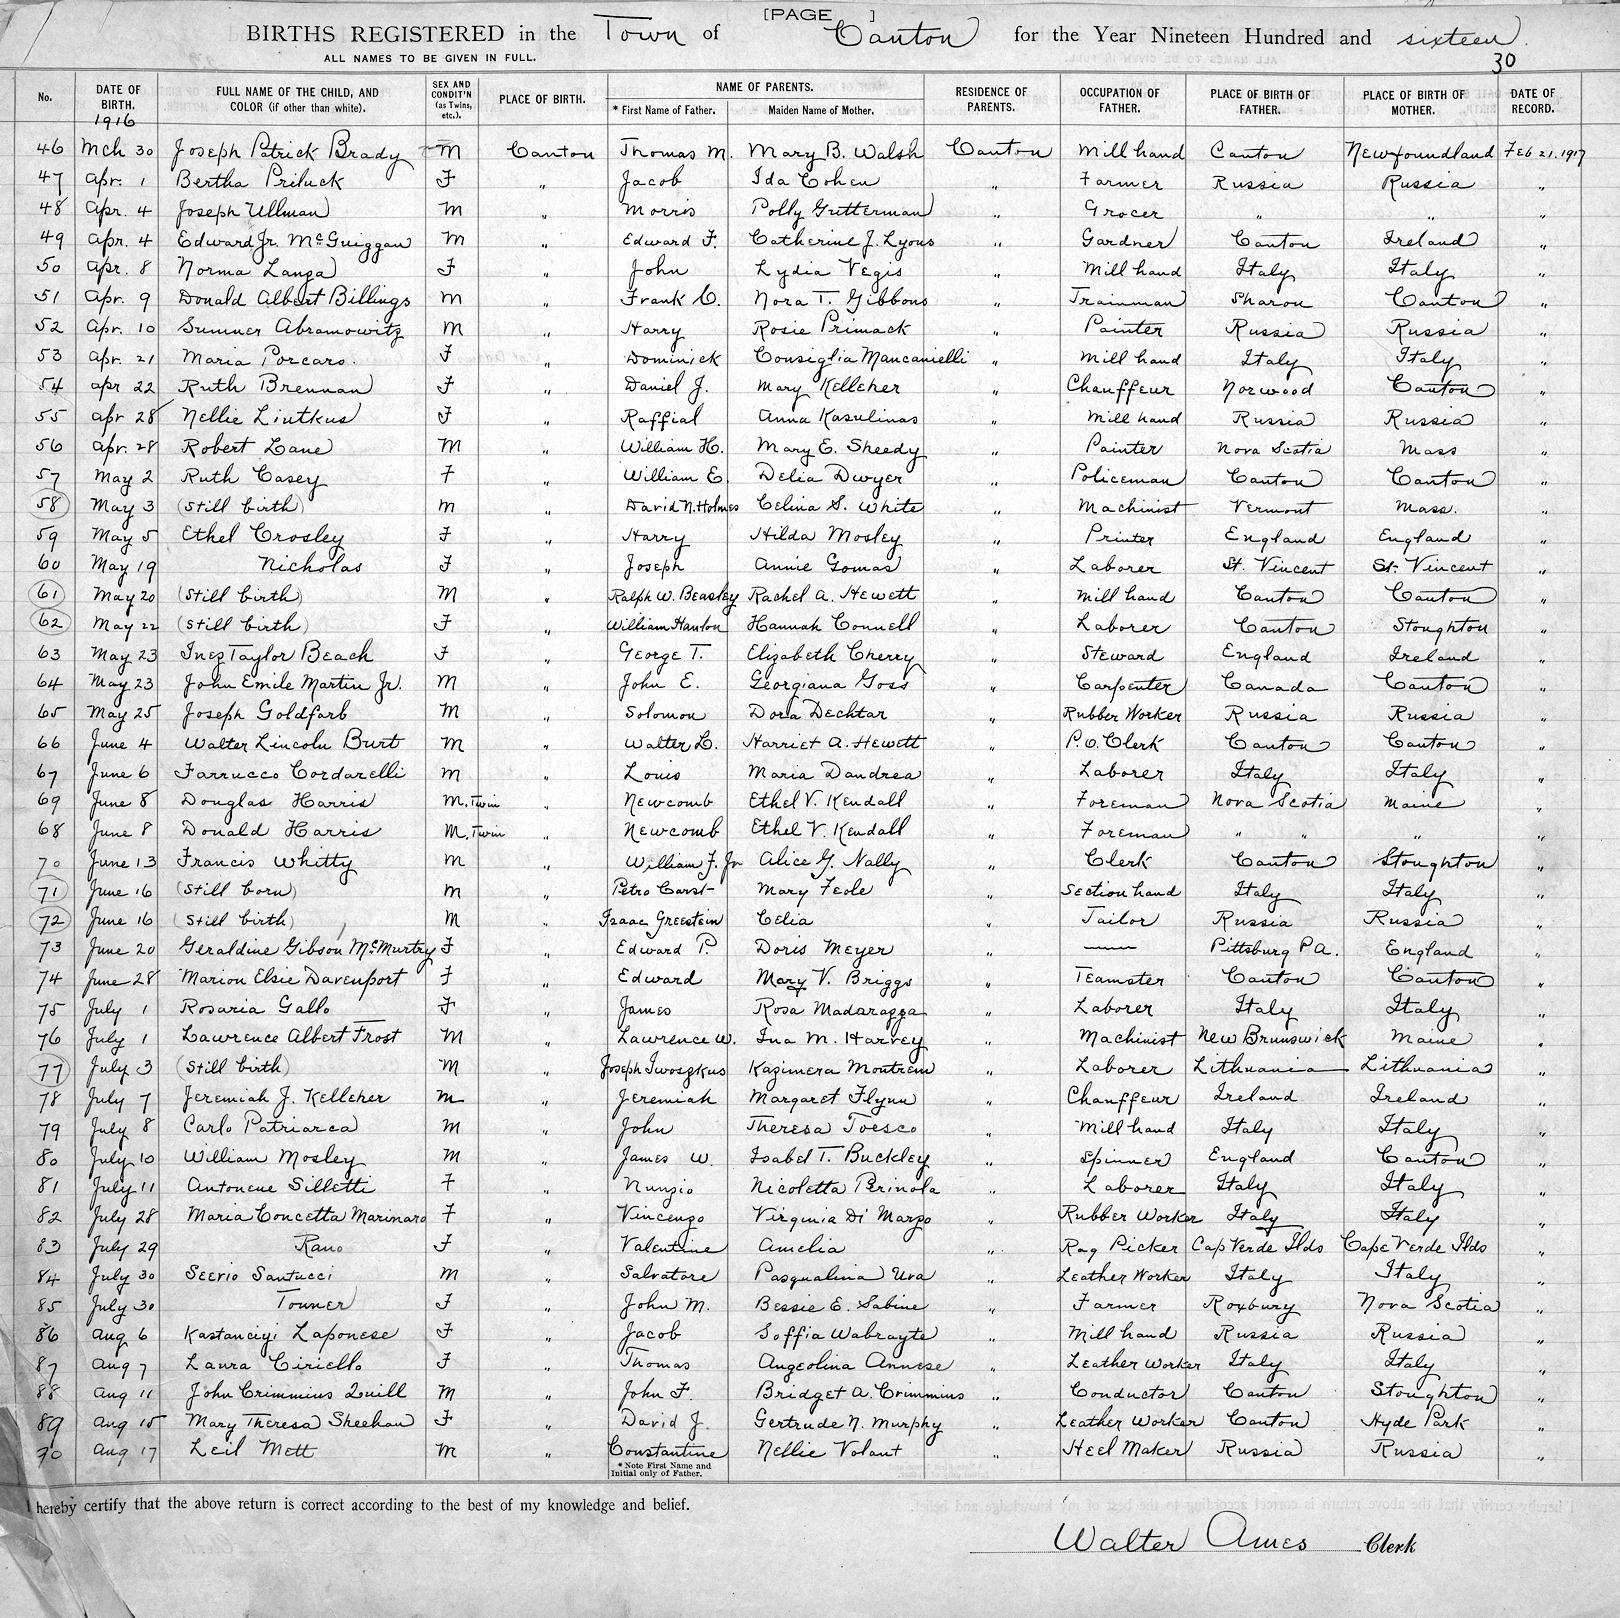 [PAGE ]
BIRTHS REGISTERED in the Town of Canton for the Year Nineteen Hundred and sixteen.
ALL NAMES TO BE GIVEN IN FULL.
30
No. DATE OF BIRTH. 1916 FULL NAME OF THE CHILD, AND COLOR (if other than white). SEX AND CONDIT'N (as Twins, etc.). PLACE OF BIRTH. NAME OF PARENTS. * First Name of Father. Maiden Name of Mother. RESIDENCE OF PARENTS. OCCUPATION OF FATHER. PLACE OF BIRTH OF FATHER. PLACE OF BIRTH OF MOTHER. DATE OF RECORD.
46 Mch 30 Joseph Patrick Brady M Canton Thomas M. Mary B. Walsh Canton Mill hand Canton Newfoundland Feb 21, 1917
47 Apr. 1 Bertha Priluck F " Jacob Ida Cohen " Farmer Russia Russia "
48 Apr. 4 Joseph Ullman M " Morris Polly Gutterman " Grocer " " "
49 Apr. 4 Edward Jr. McGuiggan M " Edward F. Catherine J. Lyons " Gardner Canton Ireland "
50 Apr. 8 Norma Langa F " John Lydia Vegis " Mill hand Italy Italy "
51 Apr. 9 Donald Albert Billings M " Frank C. Nora T. Gibbons " Trainman Sharon Canton "
52 Apr. 10 Sumner Abramowitz M " Harry Rosie Primack " Painter Russia Russia "
53 Apr. 21 Maria Porcaro. F " Dominick Consiglia Mancanielli " Mill hand Italy Italy "
54 Apr 22 Ruth Brennan F " Daniel J. Mary Kelleher " Chauffeur Norwood Canton "
55 Apr 28 Nellie Liutkus F " Raffial Anna Kasulinas " Mill hand Russia Russia "
56 Apr. 28 Robert Lane M " William H. Mary E. Sheedy " Painter Nova Scotia Mass "
57 May 2 Ruth Casey F " William E. Delia Dwyer " Policeman Canton Canton "
58 May 3 (Still birth) M " David N. Holmes Celina S. White " Machinist Vermont Mass. "
59 May 5 Ethel Crosley F " Harry Hilda Mosley " Printer England England "
60 May 19 Nicholas F " Joseph Annie Gomas " Laborer St. Vincent St. Vincent "
61 May 20 (Still birth) M " Ralph W. Beasley Rachel A. Hewett " Mill hand Canton Canton "
62 May 22 (Still birth) F " William Hanton Hannah Connell " Laborer Canton Stoughton "
63 May 23 Inez Taylor Beach F " George T. Elizabeth Cherry " Steward England Ireland "
64 May 23 John Emile Martin Jr. M " John E. Georgiana Goss " Carpenter Canada Canton "
65 May 25 Joseph Goldfarb M " Solomon Dora Dechtar " Rubber Worker Russia Russia "
66 June 4 Walter Lincoln Burt M " Walter L. Harriet A. Hewett " P.O. Clerk Canton Canton "
67 June 6 Farrucco Cordarelli M " Louis Maria Dandrea " Laborer Italy Italy "
69 June 8 Douglas Harris M. Twin " Newcomb Ethel V. Kendall " Foreman Nova Scotia Maine "
68 June 8 Donald Harris M. Twin " Newcomb Ethel V. Kendall " Foreman " " " "
70 June 13 Francis Whitty M " William F. Jr Alice G. Nally " Clerk Canton Stoughton "
71 June 16 (Still born) M " Petro Mary Feole " Section hand Italy Italy "
72 June 16 (Still birth) M " Isaac Greestein Celia " Tailor Russia Russia "
73 June 20 Geraldine Gibson McMurtry F " Edward P. Doris Meyer " — Pittsburg PA. England "
74 June 28 Marion Elsie Davenport F " Edward Mary V. Briggs " Teamster Canton Canton "
75 July 1 Rosaria Gallo F " James Rosa Madaragga " Laborer Italy Italy "
76 July 1 Lawrence Albert Frost M " Lawrence W. Ina M. Harvey " Machinist New Brunswick Maine "
77 July 3 (Still birth) M " Joseph Iwoszkus Kazimera Montrem " Laborer Lithuania Lithuania "
78 July 7 Jeremiah J. Kelleher M " Jeremiah Margaret Flynn " Chauffeur Ireland Ireland "
79 July 8 Carlo Patriarca M " John Theresa Toesco " Mill hand Italy Italy "
80 July 10 William Mosley M " James W. Isabel T. Buckley " Spinner England Canton "
81 July 11 Antonene Silletti F " Nunzio Nicoletta Perinola " Laborer Italy Italy "
82 July 28 Maria Concetta Marinaro F " Vincenzo Virginia Di Marzo " Rubber Worker Italy Italy "
83 July 29 Rano F " Valentine Amelia " Rag Picker Cap Verde Ilds Cape Verde Ilds "
84 July 30 Seerio Santucci M " Salvatore Pasqualina Uva " Leather Worker Italy Italy "
85 July 30 Towner F " John M. Bessie E. Sabine " Farmer Roxbury Nova Scotia "
86 Aug 6 Kastanciyi Laponese F " Jacob Soffia Wabrayte " Mill hand Russia Russia "
87 Aug 7 Laura Ciriello F " Thomas Angeolina Annese " Leather Worker Italy Italy "
88 Aug 11 John Crimmins Quill M " John F. Bridget A. Crimmins " Conductor Canton Stoughton "
89 Aug 15 Mary Theresa Sheehan F " David J. Gertrude N. Murphy " Leather Worker Canton Hyde Park "
90 Aug 17 Leil Mett M " Constantine Nellie Volant " Heel Maker Russia Russia "
* Note First Name and
Initial only of Father.
I hereby certify that the above return is correct according to the best of my knowledge and belief.
Walter Ames Clerk